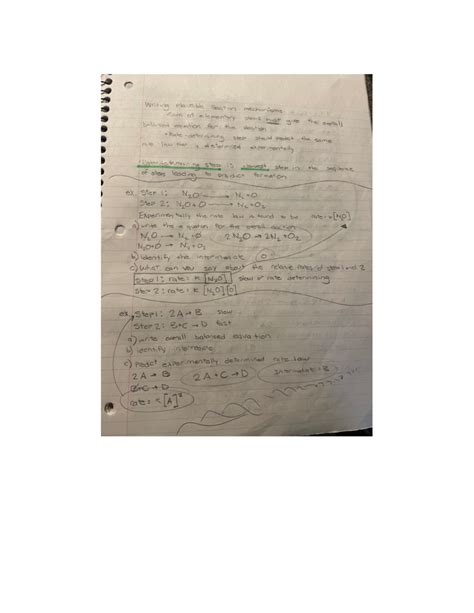 Writing plausible reaction mechanisms:
• Sum of elementary steps must give the overall
balanced equation for the reaction
• Rate-determining step should predict the same
rate law that is determined experimentally
Rate-determining step is slowest step in the sequence
of steps leading to product formation
ex. Step 1: N₂O → N₂ + O
Step 2: N₂O + O → N₂ + O₂
Experimentally the rate law is found to be rate = k[N₂O]
a) write the equation for the overall reaction
N₂O → N₂ + O 2N₂O → 2N₂ + O₂
N₂O + O → N₂ + O₂
b) Identify the intermediate O
c) What can you say about the relative rates of steps 1 and 2
Step 1: rate = k [N₂O] slow & rate determining
Step 2: rate = k [N₂O][O]
ex. Step 1: 2A → B slow
Step 2: B + C → D fast
a) write overall balanced equation
b) Identify intermediate
c) Predict experimentally determined rate law
2A → B
B + C → D 2A + C → D Intermediate = B
rate = k [A]²